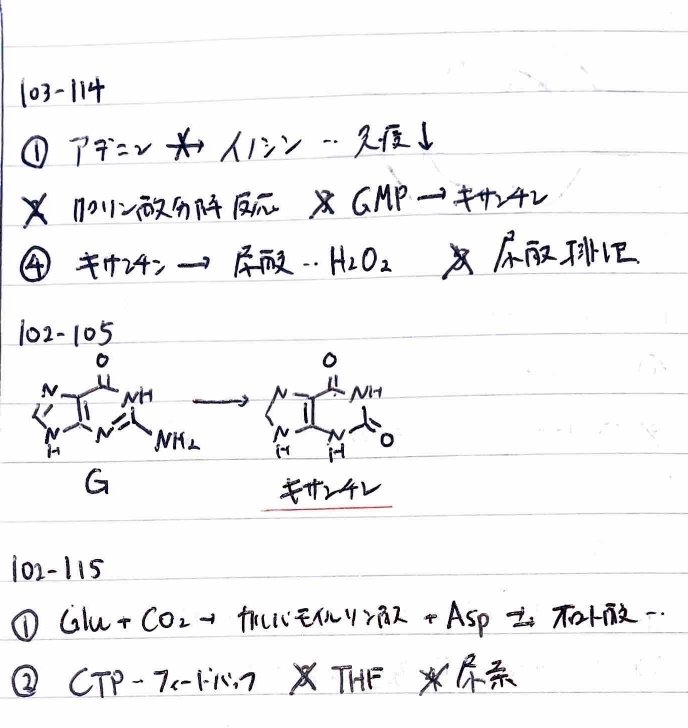 103-114
① アデニン → イノシン … 免疫↓
加リン酸分解反応 GMP → キサンチン
④ キサンチン → 尿酸 … H2O2 尿酸排泄
102-105
O O
N NH → N NH
N H N NH2 N H N H O
G キサンチン
102-115
① Glu + CO2 → カルバモイルリン酸 + Asp → オロト酸 …
② CTP - フィードバック THF 尿素